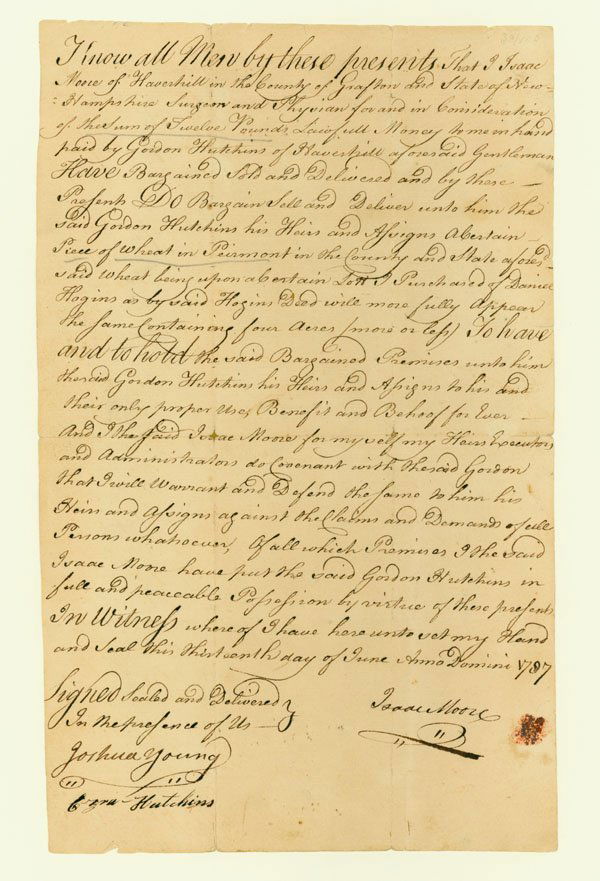 Know all Men by these presents That I Isaac
Moore of Haverhill in the County of Grafton and State of New-
-Hampshire Surgeon and Physian for and in Consideration
of the Sum of Twelve Pounds Lawfull Money to me in hand
paid by Gordon Hutchins of Haverhill aforesaid Gentleman
Have Bargained Sold and Delivered and by these —
Presents DO Bargain Sell and Deliver unto him the
said Gordon Hutchins his Heirs and Assigns a Certain —
Piece of Wheat in Peirmont in the County and State afores.d
said Wheat being upon a Certain Lott I Purchased of Daniel
Hogins as by said Hogins Deed will more fully Appear
the same Containing four Acres (more or less) To have
and to hold the said Bargained Premises unto him
the said Gordon Hutchins his Heirs and Assigns to his and
their only proper Use, Benefit and Behoof for Ever —
And I the said Isaac Moore for my self my Heirs Executors
and Administrators do Covenant with the said Gordon
that I will Warrant and Defend the same to him his
Heirs and Assigns against the Claims and Demands of all
Persons whatsoever, Of all which Premises I the said
Isaac Moore have put the said Gordon Hutchins in
full and peaceable Possession by virtue of these presents
In Witness where of I have here unto set my Hand
and Seal this thirteenth day of June Anno Domini 1787
Signed Sealed and Delivered
In the presence of Us —
Isaac Moore
Joshua Young
Ezra Hutchins